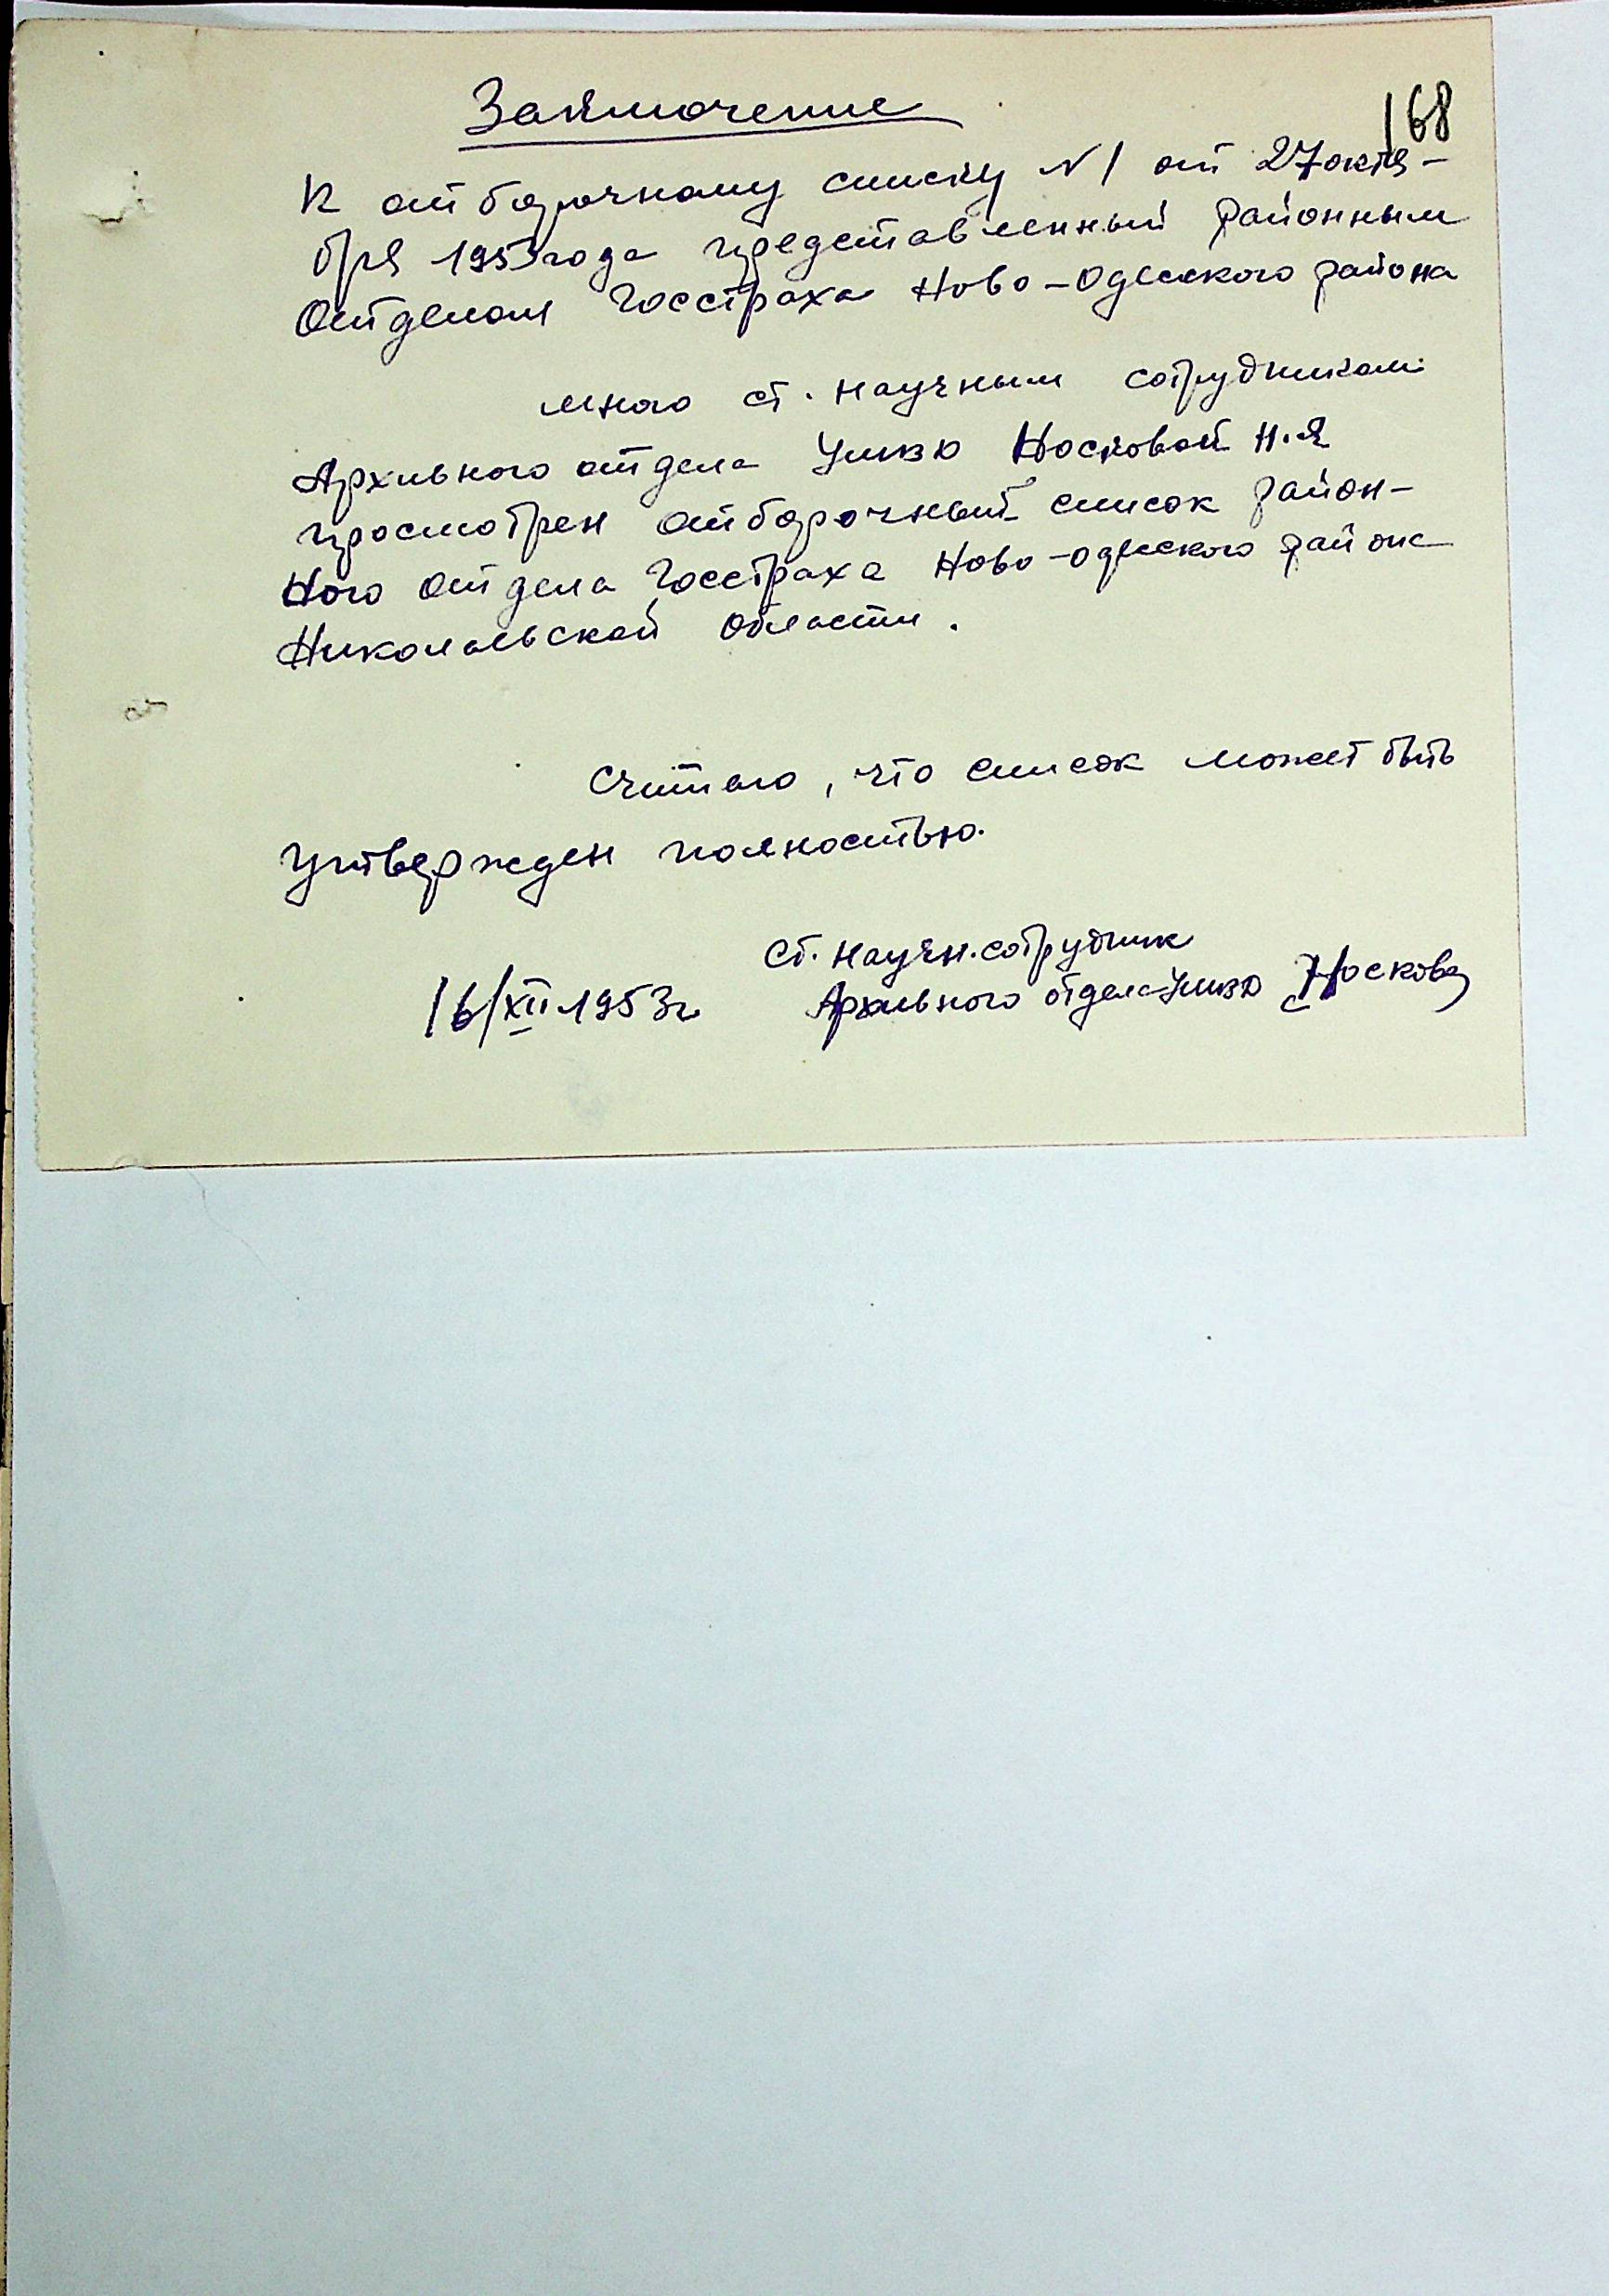 168
Заключение
К отборочному списку N 1 от 27 октя-
бря 1953 года представленный районным
Отделом Госстраха Ново-Одесского района
мною ст. научным сотрудником
Архивного отдела УМВД Носковой Н.Я
просмотрен отборочный список район-
ного отдела Госстраха Ново-Одесского района
Николаевской области.
Считаю, что список может быть
утвержден полностью.
Ст. научн. сотрудник
16/XII-1953г. Архивного отдела УМВД Носкова